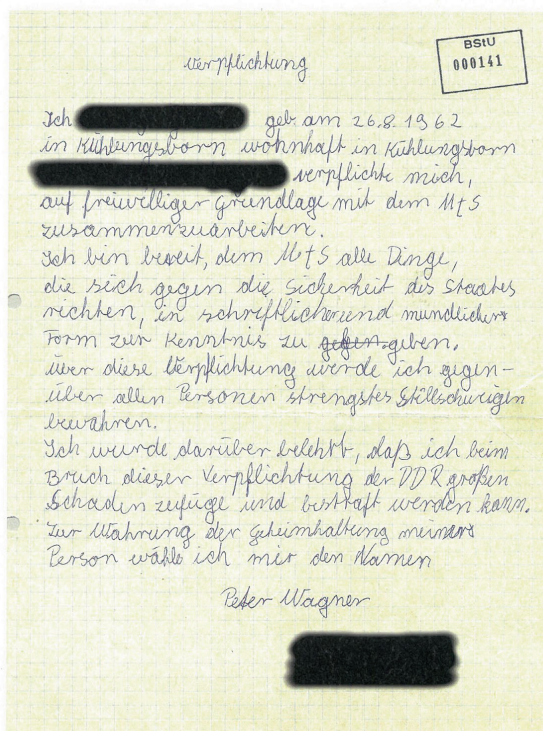 BStU
000141
Verpflichtung
Ich geb. am 26.8.1962
in Kühlungsborn wohnhaft in Kühlungsborn
verpflichte mich,
auf freiwilliger Grundlage mit dem MfS
zusammenzuarbeiten.
Ich bin bereit, dem MfS alle Dinge,
die sich gegen die Sicherheit des Staates
richten, in schriftlicher und mündlicher
Form zur Kenntnis zu geben.
Über diese Verpflichtung werde ich gegen-
über allen Personen strengstes Stillschweigen
bewahren.
Ich wurde darüber belehrt, daß ich beim
Bruch dieser Verpflichtung der DDR großen
Schaden zufüge und bestraft werden kann.
Zur Wahrung der Geheimhaltung meiner
Person wähle ich mir den Namen
Peter Wagner